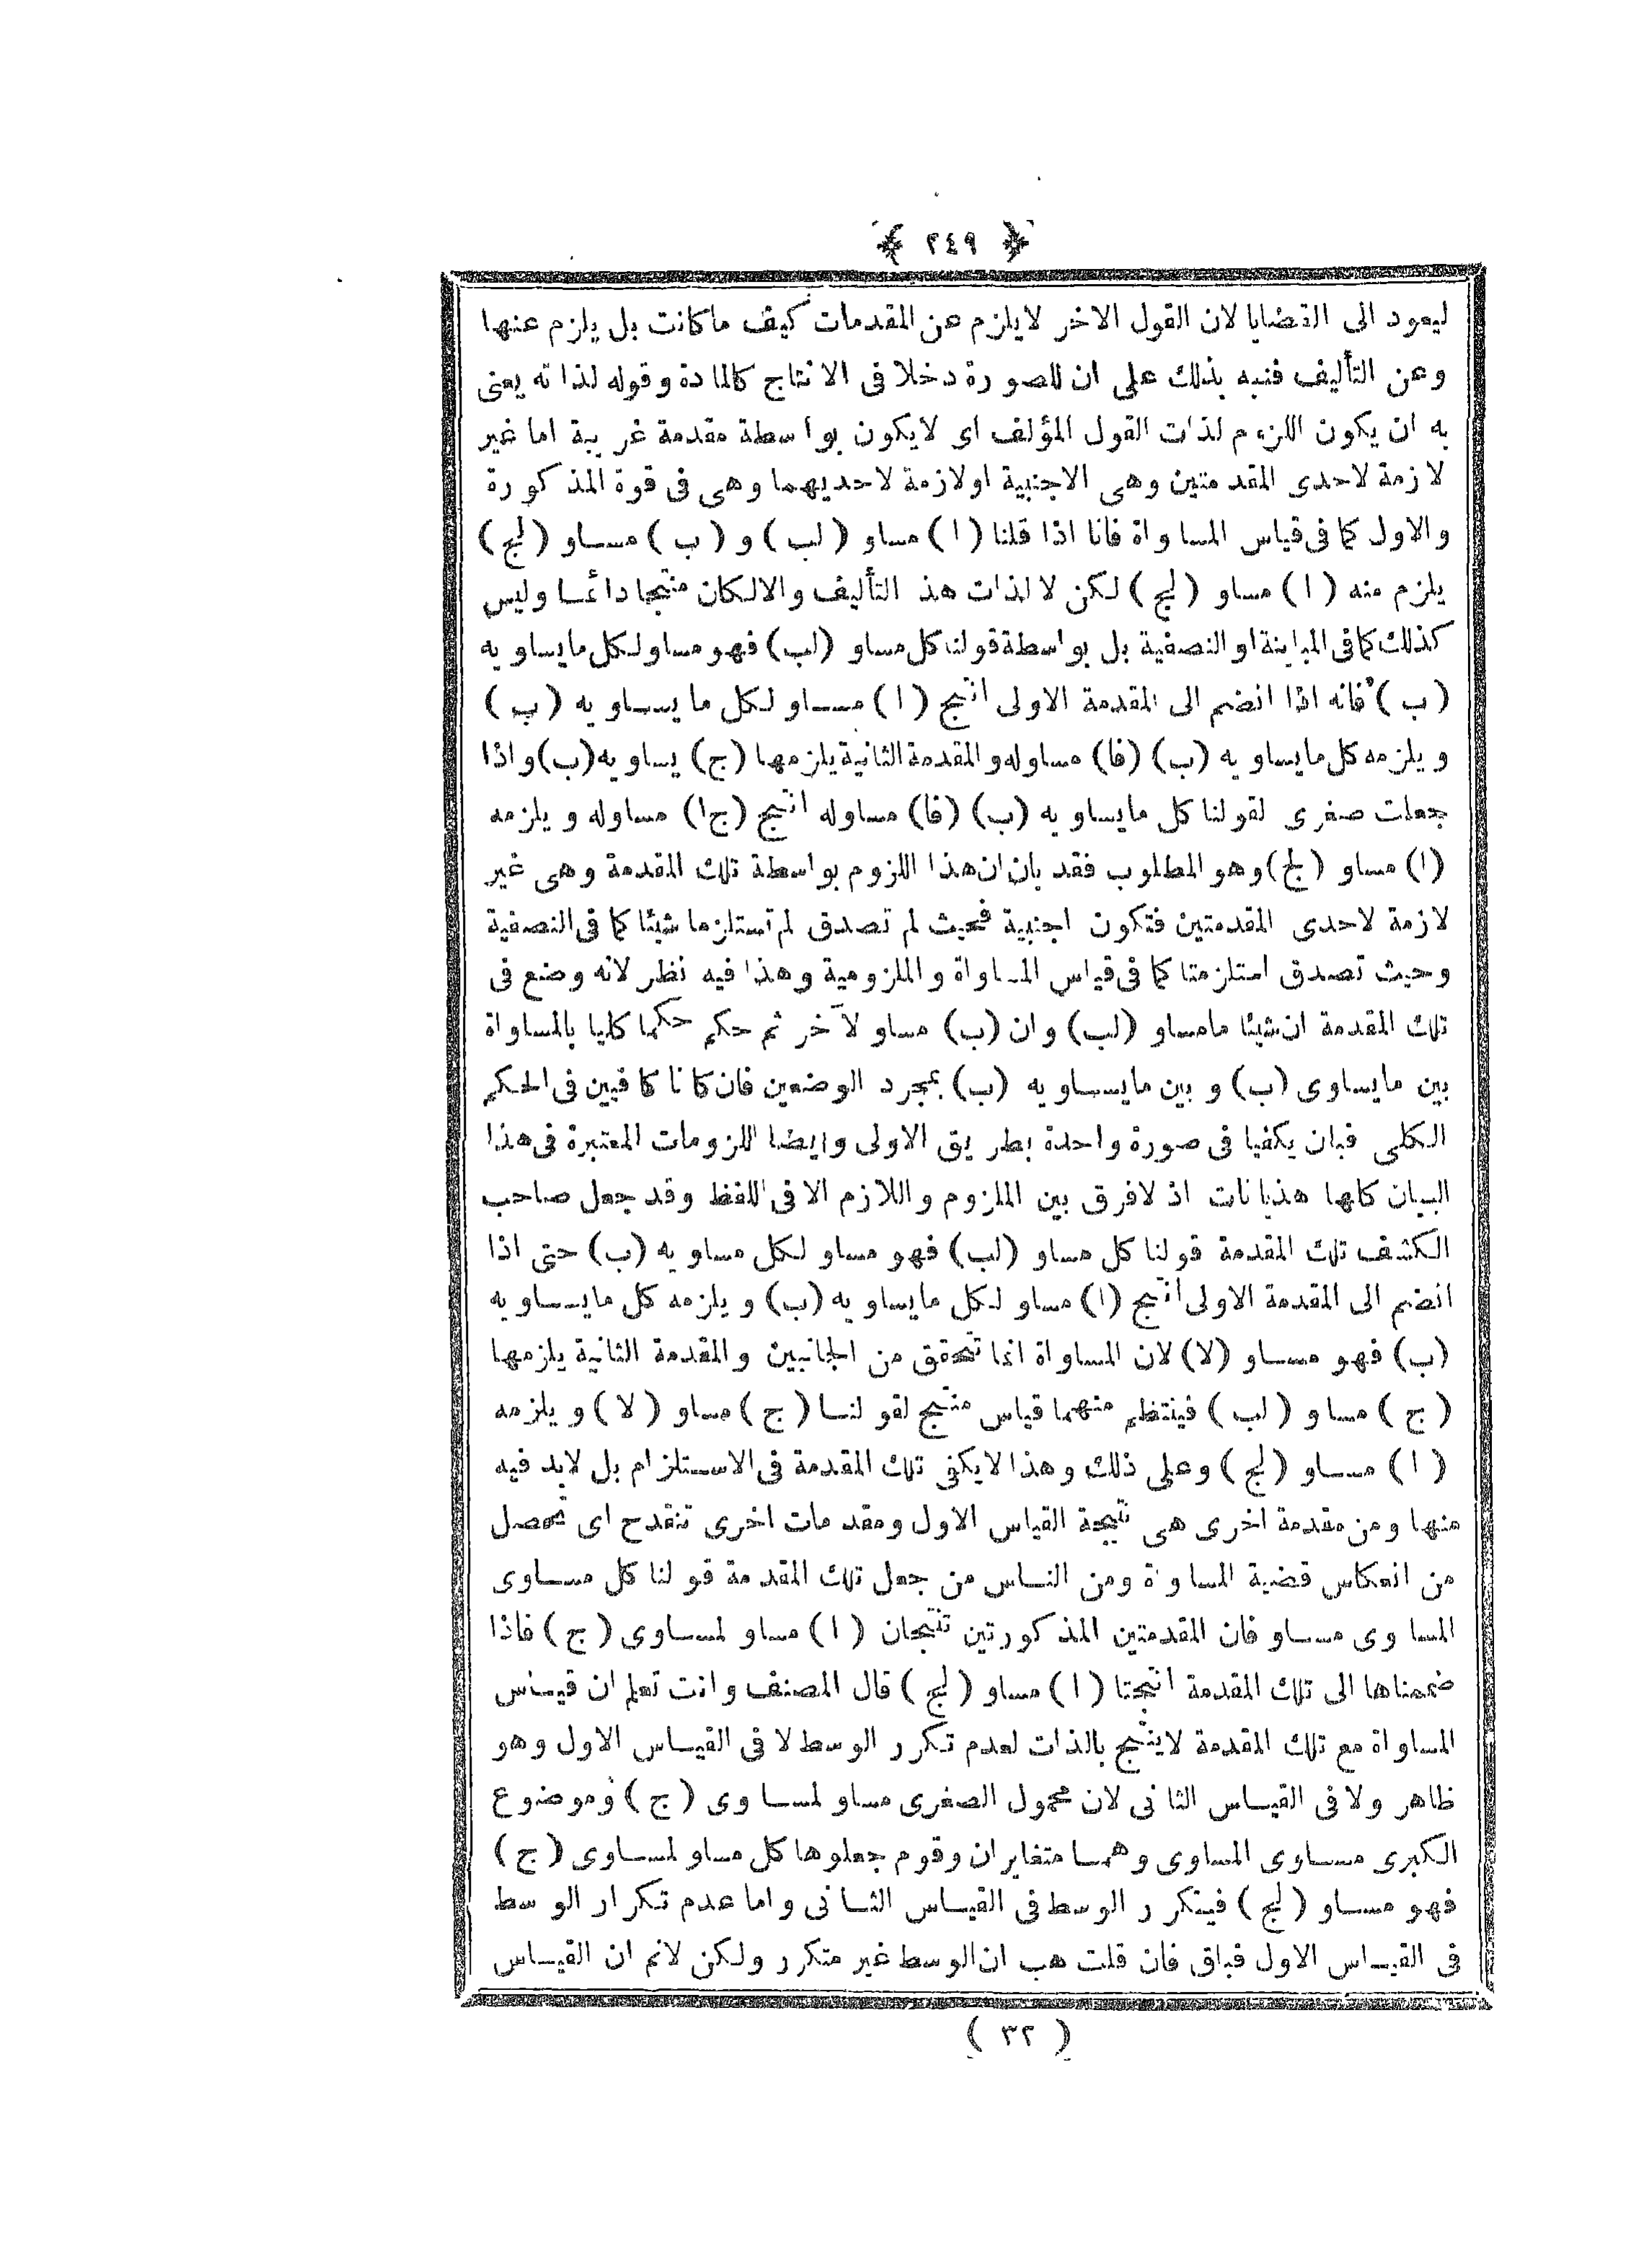 ﴿ ٢٤٩ ﴾
ليعود الى القضايا لان القول الاخر لايلزم عن المقدمات كيف ماكانت بل يلزم عنها
وعن التأليف فنبه بذلك على ان للصورة دخلا فى الانتاج كالمادة وقوله لذاته يعنى
به ان يكون اللزوم لذات القول المؤلف اى لايكون بواسطة مقدمة غريبة اما غير
لازمة لاحدى المقدمتين وهى الاجنبية اولازمة لاحديهما وهى فى قوة المذكورة
والاول كما فى قياس المساواة فانا اذا قلنا (ا) مساو (لب) و (ب) مساو (لج)
يلزم منه (ا) مساو (لج) لكن لالذات هذ التأليف والالكان منتجا دائما وليس
كذلك كما فى المباينة او النصفية بل بواسطة قولنا كل مساو (لب) فهو مساو لكل مايساويه
(ب) فانه اذا انضم الى المقدمة الاولى انتج (ا) مساو لكل مايساويه (ب)
ويلزمه كل مايساويه (ب) (فا) مساوله والمقدمة الثانية يلزمها (ج) يساويه (ب) واذا
جعلت صغرى لقولنا كل مايساويه (ب) (فا) مساوله انتج (ج ا) مساوله ويلزمه
(ا) مساو (لج) وهو المطلوب فقد بان ان هذا اللزوم بواسطة تلك المقدمة وهى غير
لازمة لاحدى المقدمتين فتكون اجنبية فحيث لم تصدق لم تستلزما شيئا كما فى النصفية
وحيث تصدق استلزمتا كما فى قياس المساواة والملزومية وهذا فيه نظر لانه وضع فى
تلك المقدمة ان شيئا مامساو (لب) وان (ب) مساو لآخر ثم حكم حكما كليا بالمساواة
بين مايساوى (ب) وبين مايساويه (ب) بمجرد الوضعين فان كانا كافيين فى الحكم
الكلى فبان يكفيا فى صورة واحدة بطريق الاولى وايضا اللزومات المعتبرة فى هذا
البيان كلها هذيانات اذ لافرق بين الملزوم واللازم الا فى اللفظ وقد جعل صاحب
الكشف تلك المقدمة قولنا كل مساو (لب) فهو مساو لكل مساويه (ب) حتى اذا
انضم الى المقدمة الاولى انتج (ا) مساو لكل مايساويه (ب) ويلزمه كل مايساويه
(ب) فهو مساو (لا) لان المساواة انما تتحقق من الجانبين والمقدمة الثانية يلزمها
(ج) مساو (لب) فينتظم منهما قياس منتج لقولنا (ج) مساو (لا) ويلزمه
(ا) مساو (لج) وعلى ذلك وهذا لايكفى تلك المقدمة فى الاستلزام بل لابد فيه
منها ومن مقدمة اخرى هى نتيجة القياس الاول ومقدمات اخرى تنقدح اى تحصل
من انعكاس قضية المساواة ومن الناس من جعل تلك المقدمة قولنا كل مساوى
المساوى مساو فان المقدمتين المذكورتين تنتجان (ا) مساو لمساوى (ج) فاذا
ضممناها الى تلك المقدمة انتجتا (ا) مساو (لج) قال المصنف وانت تعلم ان قياس
المساواة مع تلك المقدمة لاينتج بالذات لعدم تكرر الوسط لا فى القياس الاول وهو
ظاهر ولا فى القياس الثانى لان محمول الصغرى مساو لمساوى (ج) وموضوع
الكبرى مساوى المساوى وهما متغايران وقوم جعلوها كل مساو لمساوى (ج)
فهو مساو (لج) فيتكرر الوسط فى القياس الثانى واما عدم تكرار الوسط
فى القياس الاول فباق فان قلت هب ان الوسط غير متكرر ولكن لانم ان القياس
( ٣٢ )